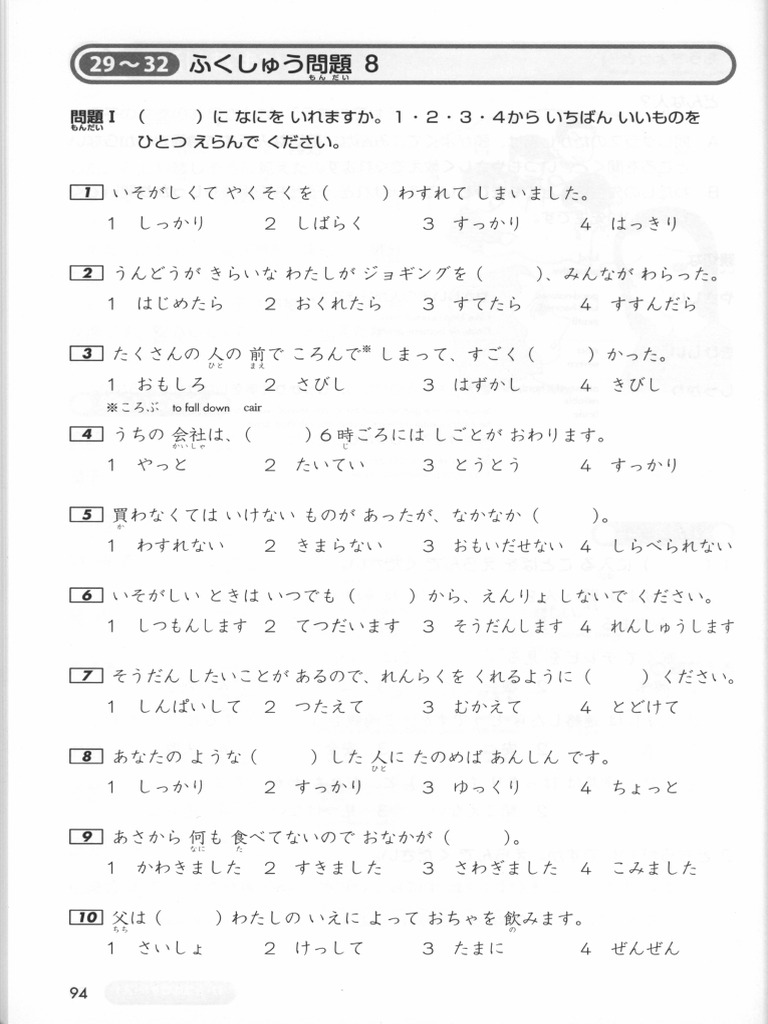 29〜32 ふくしゅう問題 8
もんだい
問題Ⅰ （　　　）に なにを いれますか。1・2・3・4から いちばん いいものを
もんだい
ひとつ えらんで ください。
1 いそがしくて やくそくを（　　　）わすれて しまいました。
1 しっかり 2 しばらく 3 すっかり 4 はっきり
2 うんどうが きらいな わたしが ジョギングを（　　　）、みんなが わらった。
1 はじめたら 2 おくれたら 3 すてたら 4 すすんだら
3 たくさんの 人の 前で ころんで※ しまって、すごく（　　　）かった。
ひと まえ
1 おもしろ 2 さびし 3 はずかし 4 きびし
※ころぶ to fall down cair
4 うちの 会社は、（　　　）6時ごろには しごとが おわります。
かいしゃ じ
1 やっと 2 たいてい 3 とうとう 4 すっかり
5 買わなくては いけない ものが あったが、なかなか（　　　）。
か
1 わすれない 2 きまらない 3 おもいだせない 4 しらべられない
6 いそがしい ときは いつでも（　　　）から、えんりょ しないで ください。
1 しつもんします 2 てつだいます 3 そうだんします 4 れんしゅうします
7 そうだん したいことが あるので、れんらくを くれるように（　　　）ください。
1 しんぱいして 2 つたえて 3 むかえて 4 とどけて
8 あなたの ような（　　　）した 人に たのめば あんしん です。
ひと
1 しっかり 2 すっかり 3 ゆっくり 4 ちょっと
9 あさから 何も 食べてないので おなかが（　　　）。
なに た
1 かわきました 2 すきました 3 さわぎました 4 こみました
10 父は（　　　）わたしの いえに よって おちゃを 飲みます。
ちち の
1 さいしょ 2 けっして 3 たまに 4 ぜんぜん
94